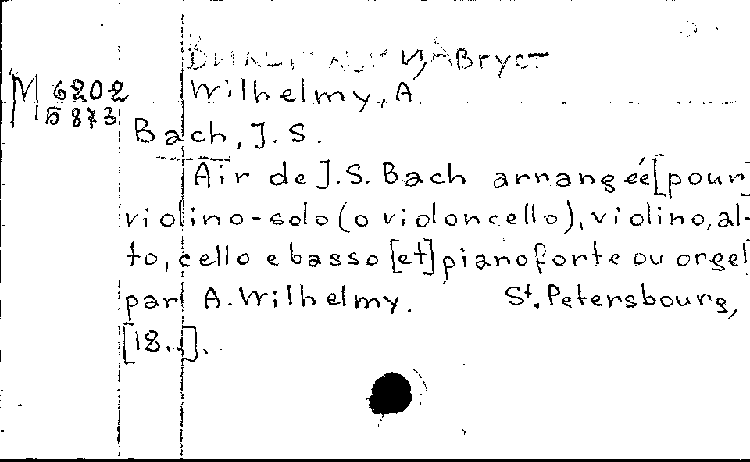 Август
M 6202 Wilhelmy, A.
5873
Bach, J.S.
Air de J.S. Bach arrangée [pour]
violino-solo (o violoncello), violino, al-
to, cello e basso [et] pianoforte ou orgel
par A. Wilhelmy. St. Petersbourg,
[18..].